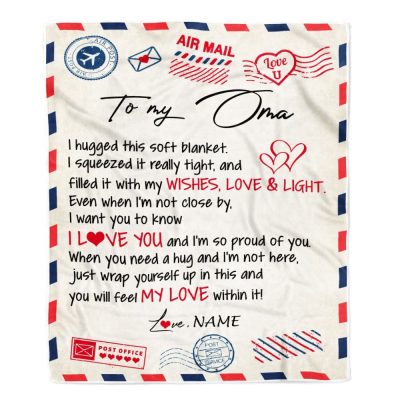 AIR MAIL
Love
U
To my Oma
I hugged this soft blanket.
I squeezed it really tight, and
filled it with my WISHES, LOVE & LIGHT.
Even when I'm not close by.
I want you to know
I L❤VE YOU and I'm so proud of you.
When you need a hug and I'm not here,
just wrap yourself up in this and
you will feel MY LOVE within it!
Love, NAME
POST OFFICE